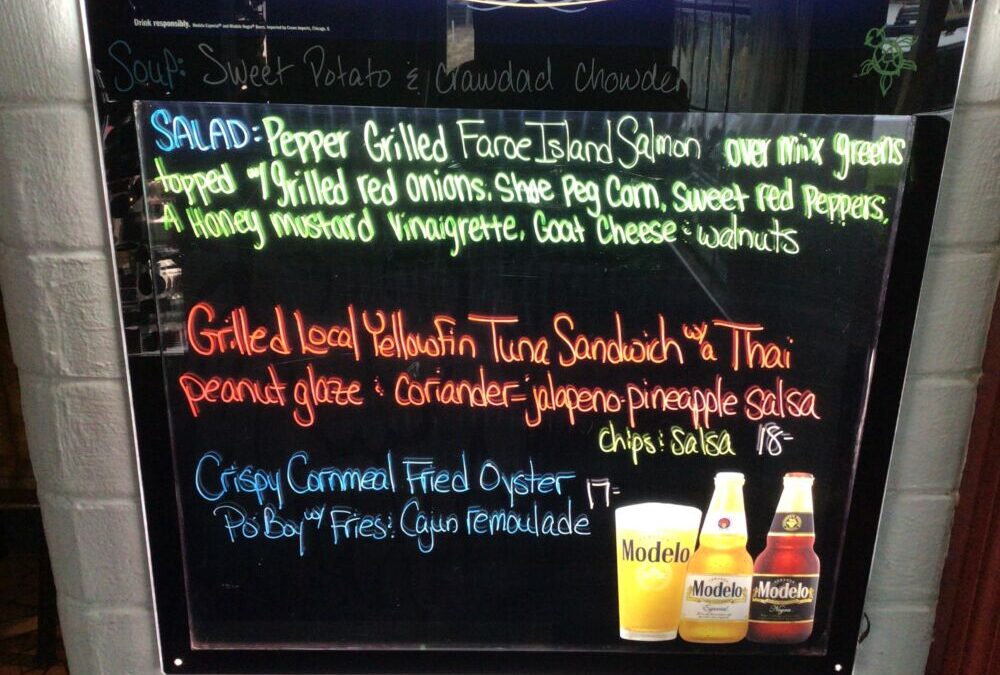 Drink responsibly. Modelo Especial® and Modelo Negra® Beers. Imported by Crown Imports, Chicago, IL
Soup: Sweet Potato & Crawdad Chowder
SALAD: Pepper Grilled Faroe Island Salmon over mix greens
topped w/ grilled red onions, Shoe Peg Corn, Sweet red Peppers,
A Honey mustard Vinaigrette, Goat Cheese & walnuts
Grilled Local Yellowfin Tuna Sandwich w/ a Thai
peanut glaze & coriander-jalapeno-pineapple salsa
chips & salsa 18-
Crispy Cornmeal Fried Oyster 17-
Po' Boy w/ Fries & Cajun remoulade
Modelo
Modelo
Especial
Modelo
Negra